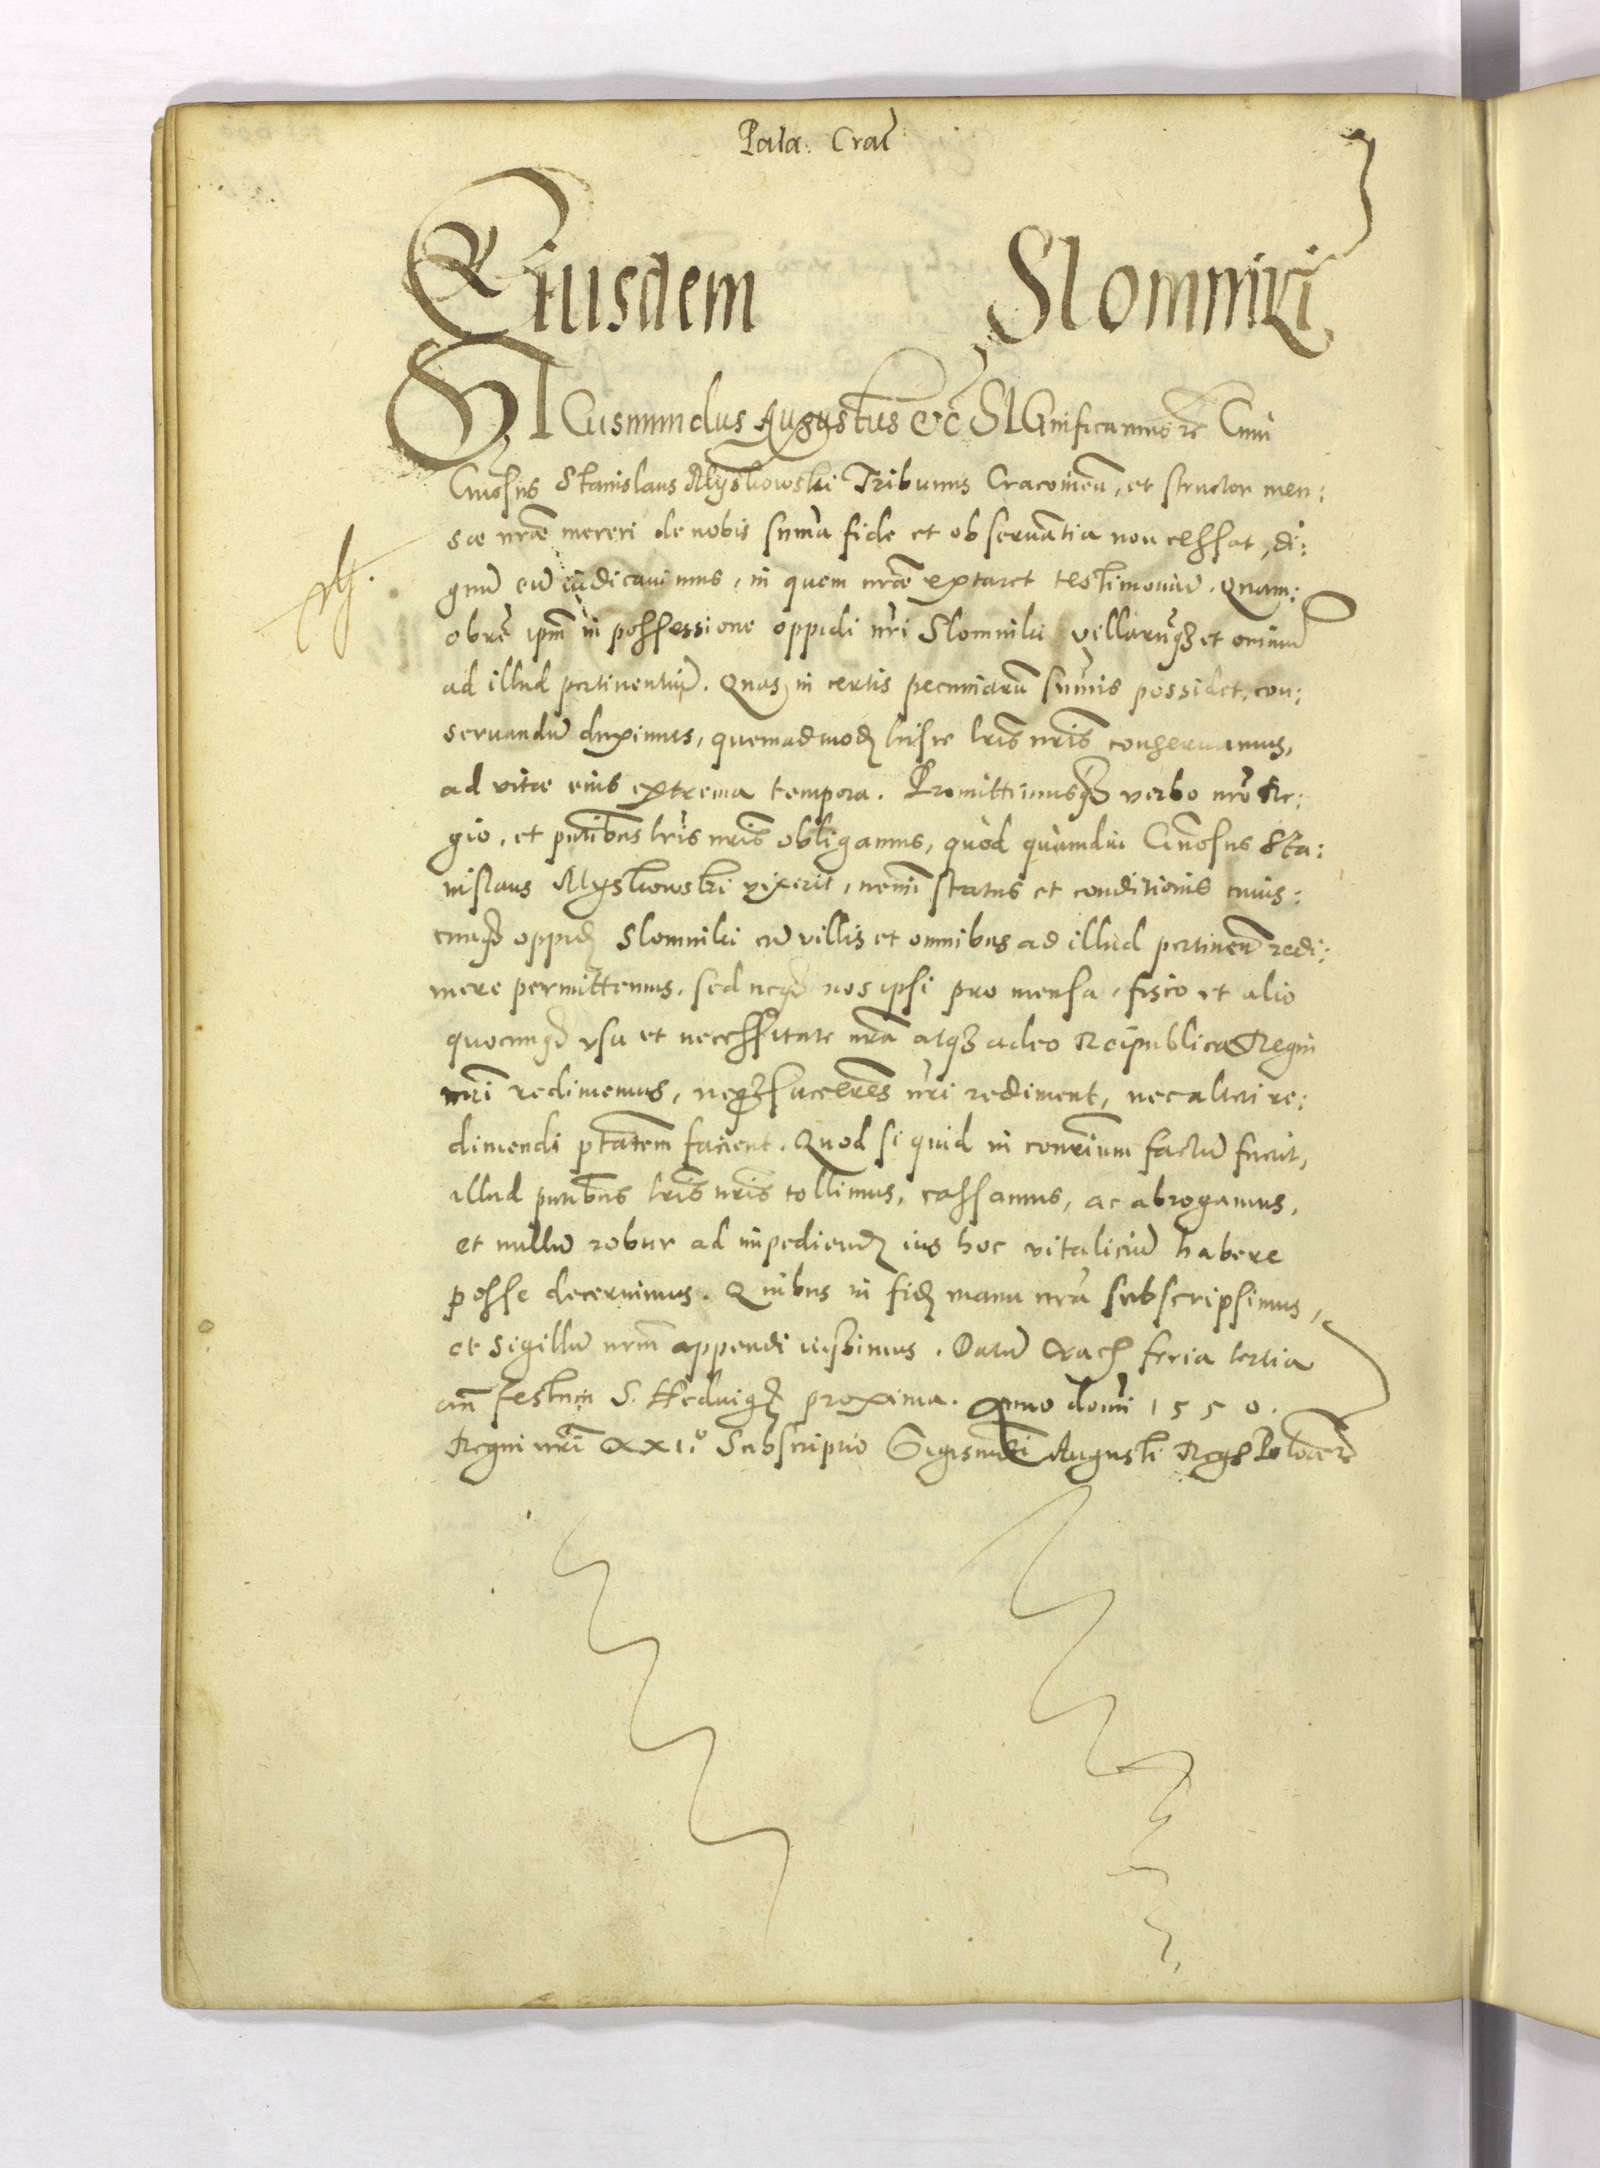 Pala: Crac̄
Eiusdem Slomniki
SIGismundus Augustus &c SIGnificamus &c Cum
Gn̄osus Stanislaus Myskowski Tribunus Cracovien̄, et structor men:
sæ nr̄æ mereri de nobis sum̄a fide et observātia non cessat, di:
gnū eū iudicavimus, in quem nr̄æ extaret testimoniū. Quam:
obrē ipm̄ in possessione oppidi nr̄i Slomniki villarūq̄ȝ et om̄niū
ad illud pertinentiū. Quas in certis pecuniarū sum̄is possidet, con:
servandū duximus, quemadmodȝ hisce lr̄is nr̄is conservamus,
ad vitæ eius extrema tempora. Promittimusq̄ȝ verbo nr̄o Re:
gio, et pn̄tibus lr̄is nr̄is obligamus, quòd quàmdiu Gn̄osus Sta:
nislaus Myskowski vixerit, nemi̅ status et conditionis cuius:
cunq̄ȝ oppidȝ Slomniki cū villis et omnibus ad illud pertinen̄ redi:
mere permittemus, sed neqȝ nos ipsi pro mensa, fisco et alio
quocunqȝ usu et necessitate nr̄a atqȝ adeo Reipublicæ Regni
nr̄i redimemus, neqȝ succe̅res nr̄i rediment, nec alteri re:
dimendi ptātem facient. Quod si quid in contr̄ium factū fuerit,
illud pn̄tibus lr̄is nr̄is tollimus, cassamus, ac abrogamus,
et nullū robur ad impediendȝ ius hoc vitaliciū habere
posse decernimus. Quibus in fidȝ manu nr̄a subscripsimus,
et sigillū nr̄m appendi iussimus. Datū Cracȝ feria tertia
an̄ festum S. Hedvigȝ proxima. Anno domi̅ 1550.
Regni nr̄i XXI.° Subscriptio Sigismūdi Augusti Regȝ Poloniæ &c